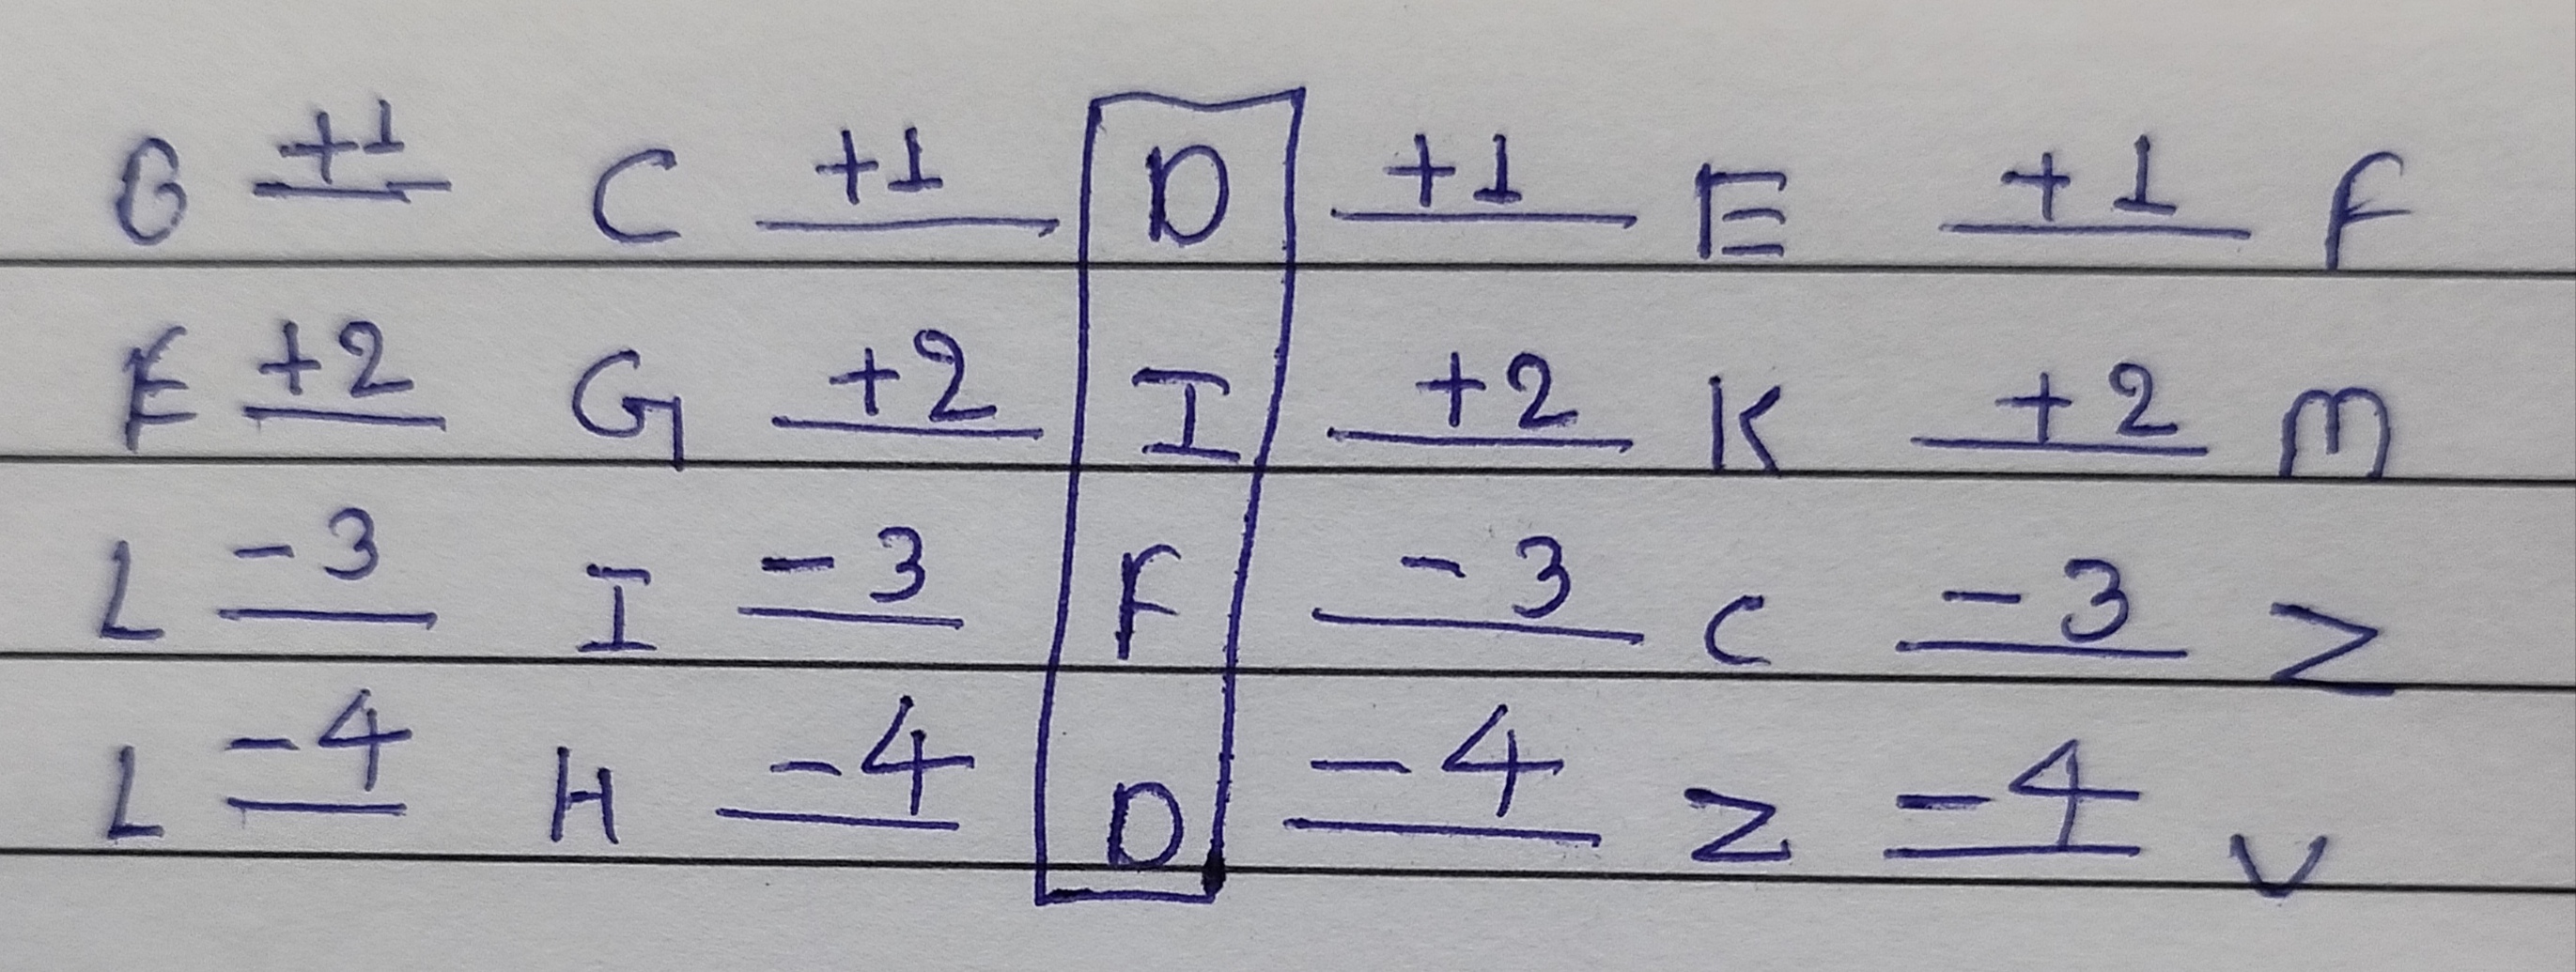 B +1 C +1 D +1 E +1 F
E +2 G +2 I +2 K +2 M
L -3 I -3 F -3 C -3 Z
L -4 H -4 D -4 Z -4 V